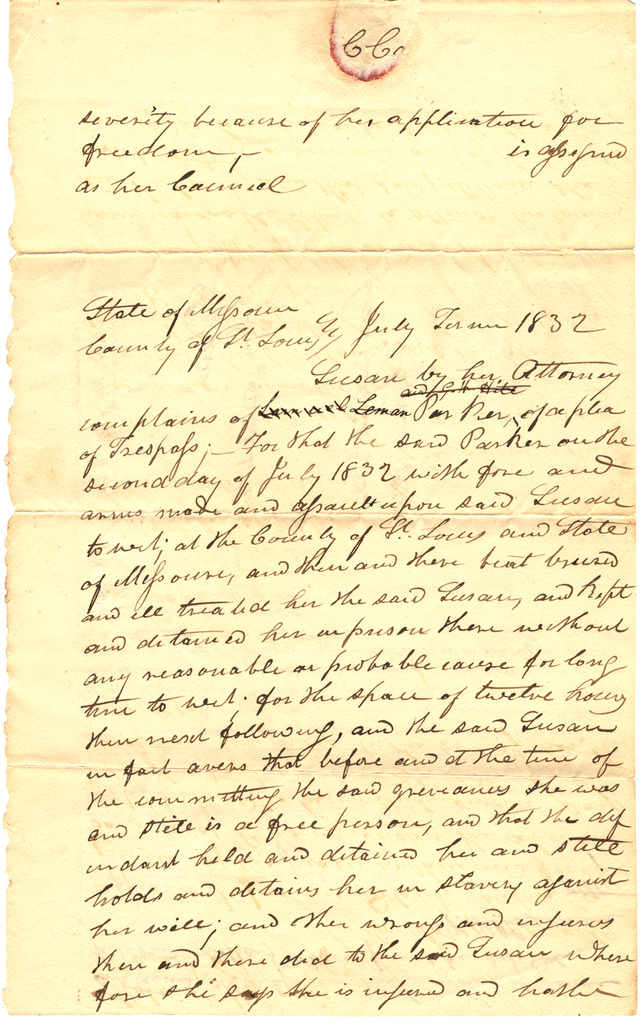 CC.
severity because of her application for
freedom,- is assigned
as her Counsel
State of Missouri
County of St. Louis July Term 1832
Susan by her Attorney
and G. H. Hite
complains of Parker, of a plea
of Trespass;- For that the said Parker on the
second day of July 1832 with force and
arms made and assault upon said Susan
to wit; at the County of St. Louis and State
of Missouri, and then and there beat bruised
and ill treated her the said Susan, and Kept
and detained her in prison there without
any reasonable or probable cause for long
time to wit; for the space of twelve hours
then next following, and the said Susan
in fact avers that before and at the time of
the committing the said grievances she was
and still is a free person, and that the def
endant held and detained her and still
holds and detains her in slavery against
her will; and other wrongs and injuries
then and there did to the said Susan where
fore she says she is injured and hath